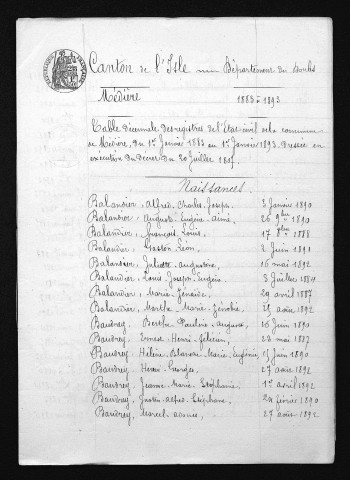 Canton de l'Isle Département du Doubs
Médière 1883 à 1893
Table décennale des registres de l'Etat-civil de la commune
de Médière, du 1er Janvier 1883 au 1er Janvier 1893. Dressée en
exécution du Décret du 20 Juillet 1807.
Naissances.
Balandier, Alfred, Charles, Joseph. 3 Janvier 1890
Balandier, August, Eugène, Aimé. 26 9bre 1890
Balandier, François, Louis. 17 1888
Balandier, Gaston, Léon. 2 Juin 1891
Balandier, Juliette, Augustine 16 mai 1892
Balandier, Louis, Joseph, Eugène. 3 Juillet 1884
Balandier, Marie, Zénaïde. 29 avril 1887
Balandier, Marthe, Marie, Zénobie. 29 août 1892
Baudrey, Berthe, Pauline, August 16 Juin 1890
Baudrey, Ernest, Henri, Félicien. 28 mai 1887
Baudrey, Hélène, Blanche, Marie, Eugénie 15 Juin 1890
Baudrey, Henri, Georges. 27 août 1892
Baudrey, Jeanne, Marie, Stéphanie. 1er avril 1892
Baudrey, Justin, Alfred, Stéphane. 22 février 1890
Baudrey, Marcel 27 août 1892